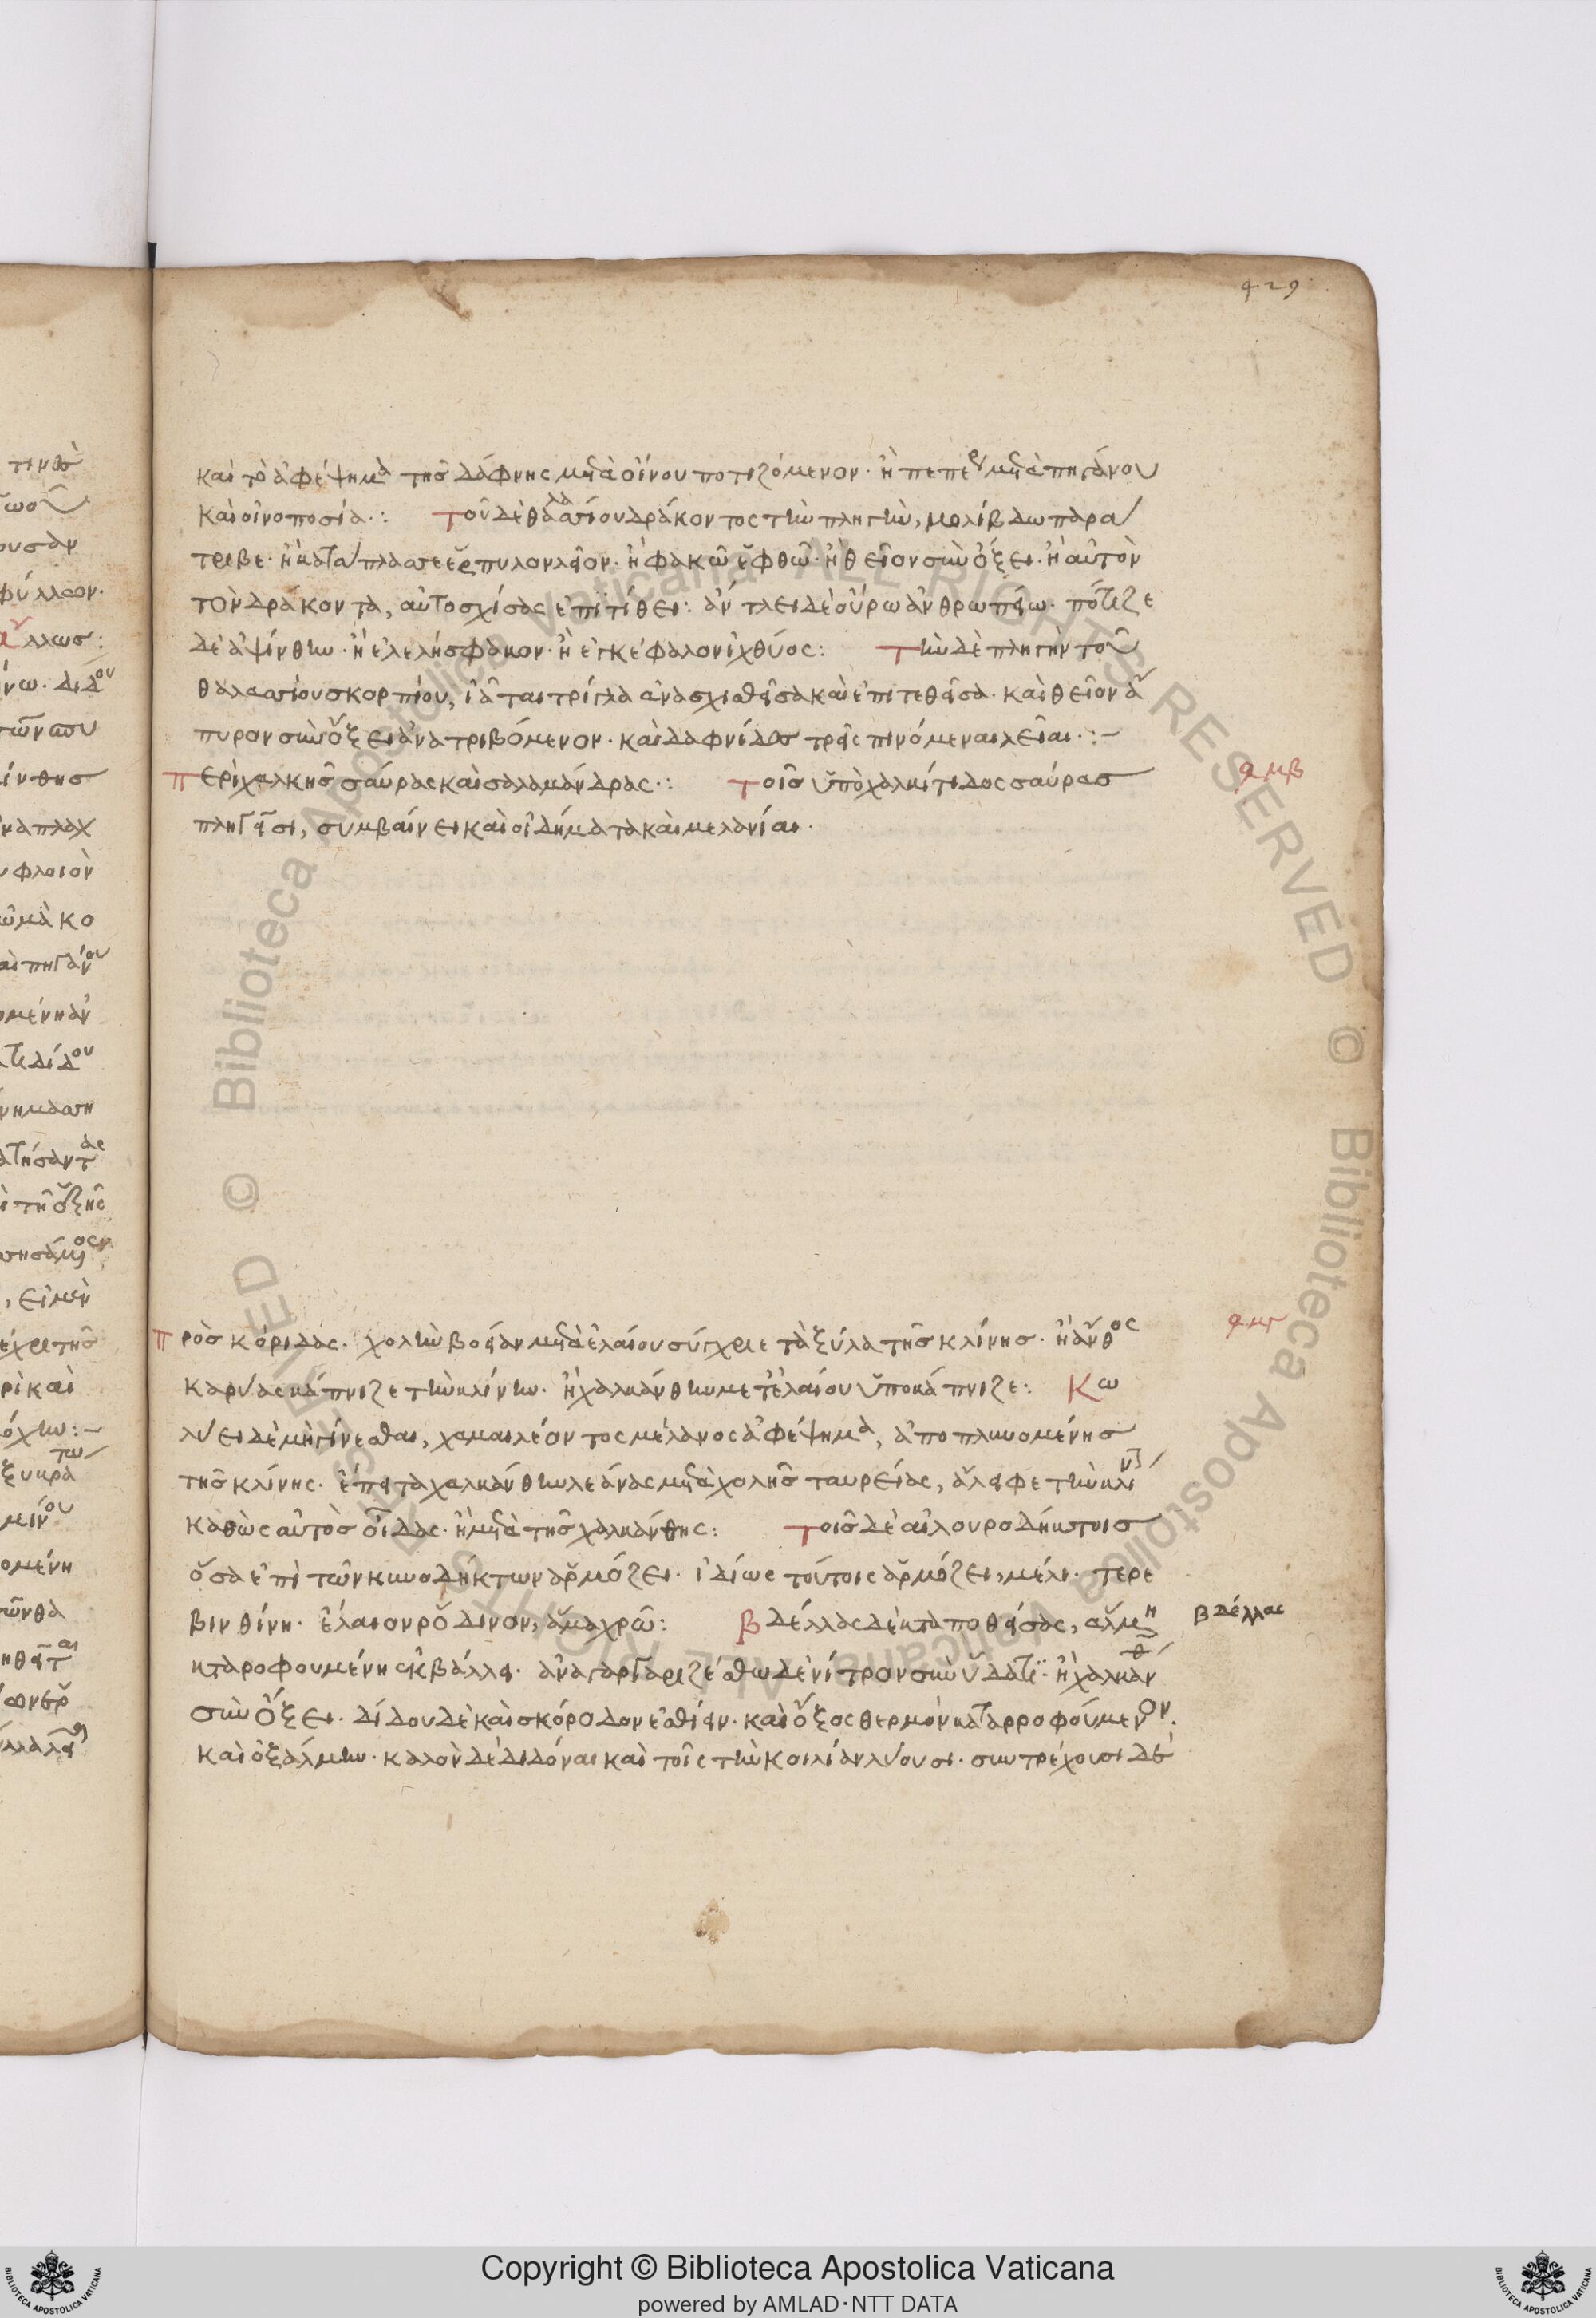 429
καὶ τὸ ἀφέψημα τῆς δάφνης μετὰ οἴνου ποτιζόμενον· ἢ πεπέρι μετὰ πηγάνου
καὶ οἰνοποσία·: τοῦ δὲ θαλασσίου δράκοντος τὴν πληγὴν, μολίβδω παρα
τριβε· ἢ κατάπλασσε ἕρπυλον λεῖον· ἢ φακῶ ἑφθῶ· ἢ θεῖον σὺν ὄξει· ἢ αὐτὸν
τὸν δράκοντα, αὐτοσχίσας ἐπιτίθει: ἀντλει δὲ οὔρω ἀνθρωπείω· πότιζε
δὲ ἀψίνθην· ἢ ἐλελήσφακον· ἢ ἐγκέφαλον ἰχθύος: τὴν δὲ πληγὴν τοῦ
θαλασσίου σκορπίου, ἰᾶται τρίγλα ἀνασχισθεῖσα καὶ ἐπιτεθεῖσα· καὶ θεῖον ἄ
πυρον σὺν ὄξει ἀνατριβόμενον· καὶ δαφνίδες τρεῖς πινόμεναι λεῖαι·:-
Περὶ χαλκῆς σαύρας καὶ σαλαμάνδρας·: τοῖς ὑπὸ χαλκίτιδος σαύρας
ϟμβ
πληγεῖσι, συμβαίνει καὶ οἰδήματα καὶ μελανίαι·
Πρὸς κόριδας· χολὴν βοείαν μετὰ ἐλαίου σύγχριε τὰ ξύλα τῆς κλίνης· ἢ ἄνθος
ϟμγ
καρύας κάπνιζε τὴν κλίνην· ἢ χαλκάνθην μετ' ἐλαίου ὑποκάπνιζε: Κω
λύει δὲ μὴ γίνεσθαι, χαμαιλέοντος μέλανος ἀφέψημα, ἀποπλυνομένης
τῆς κλίνης· ἔπειτα χαλκάνθην λεάνας μετὰ χολῆς ταυρείας, ἄλειφε τὴν κλίνην
καθὼς αὐτὸς οἶδας· ἢ μετὰ τῆς χαλκάνθης: τοῖς δὲ αἰλουροδήκτοις
ὅσα ἐπὶ τῶν κυνοδήκτων ἁρμόζει· ἰδίως τούτοις ἁρμόζει, μέλι· τερε
βινθίνη· ἔλαιον ῥόδινον, ἅμα χρῶ: βδέλλας δὲ καταποθείσας, ἅλμη
βδέλλας
καταροφουμένης ἐκβάλλει· ἀναγαργαριζέσθω δὲ νίτρον σὺν ὕδατι· ἢ χαλκάνθην
σὺν ὄξει· δίδου δὲ καὶ σκόροδον ἐσθίειν· καὶ ὄξος θερμὸν καταρροφούμενον·
καὶ ὀξάλμην· καλὸν δὲ διδόναι καὶ τοῖς τὴν κοιλίαν λύουσι· συντρέχουσι δὲ
Copyright © Biblioteca Apostolica Vaticana
powered by AMLAD·NTT DATA